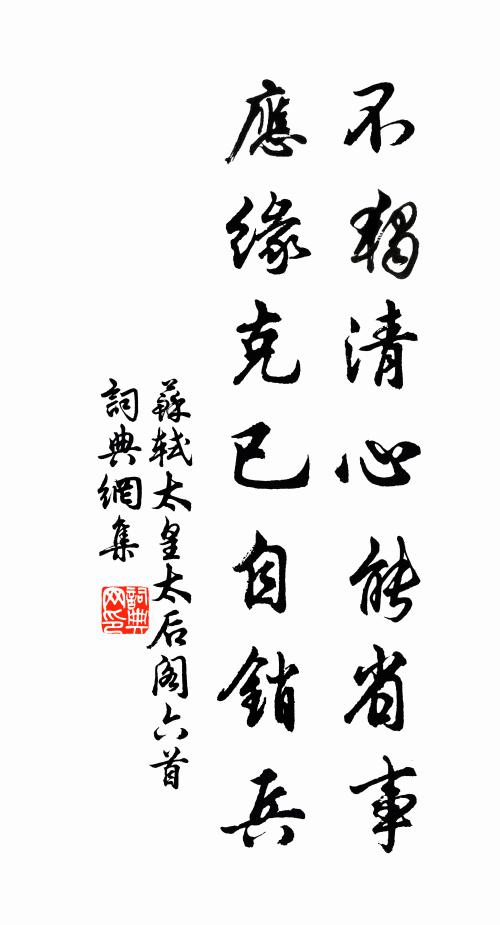 不獨清心能省事
應緣克己自銷兵
蘇軾太皇太后阁六首
詞典網集
詞典
网印